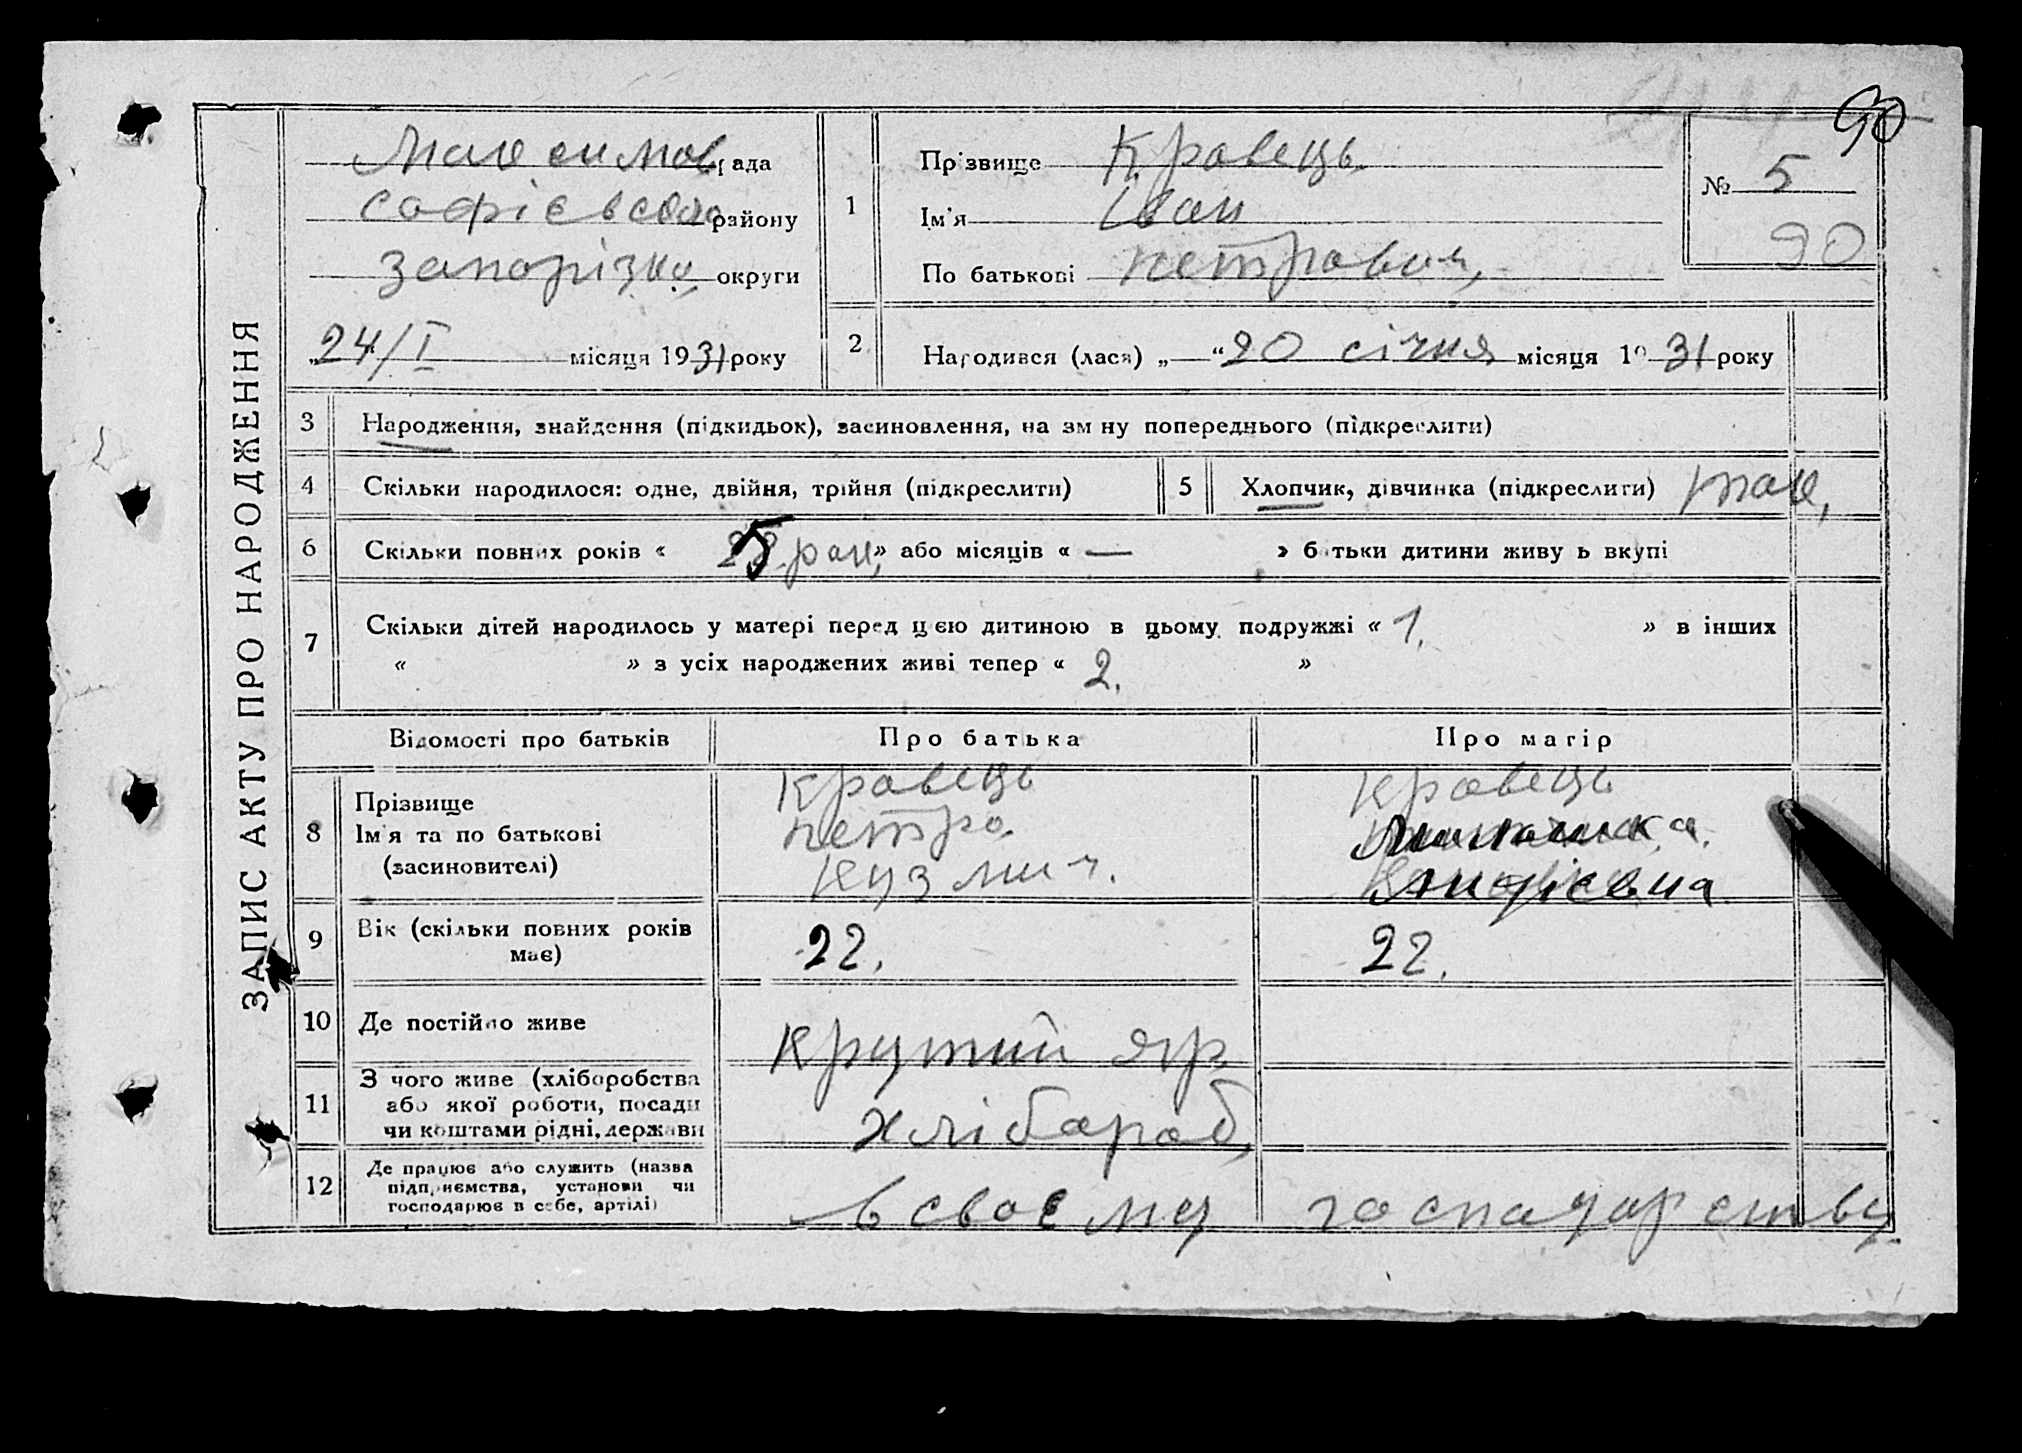 90
ЗАПИС АКТУ ПРО НАРОДЖЕННЯ
рада
району
Запорізко округи
„24/I місяця 1931 року
1
Прізвище Кравець
Ім'я Іван
По батькові Петрович,
№ 5
90
2
Народився (лася) „ “ 20 січня місяця 1931 року
3 Народження, знайдення (підкидьок), засиновлення, на зміну попереднього (підкреслити)
4 Скільки народилося: одне, двійня, трійня (підкреслити) 5 Хлопчик, дівчинка (підкреслити)
6 Скільки повних років « 5 » або місяців « — » батьки дитини живуть вкупі
7 Скільки дітей народилось у матері перед цією дитиною в цьому подружжі « 1. » в інших
« » з усіх народжених живі тепер « 2. »
Відомості про батьків Про батька Про матір
8 Прізвище
Ім'я та по батькові
(засиновителі)
Кравець
Петро
Кузмич.
Кравець
9 Вік (скільки повних років має) 22. 22.
10 Де постійно живе Крутий Яр
11 З чого живе (хліборобства
або якої роботи, посади
чи коштами рідні, держави
хлібароб,
12 Де працює або служить (назва
підприємства, установи чи
господарює в себе, артілі)
в своєму господарству.